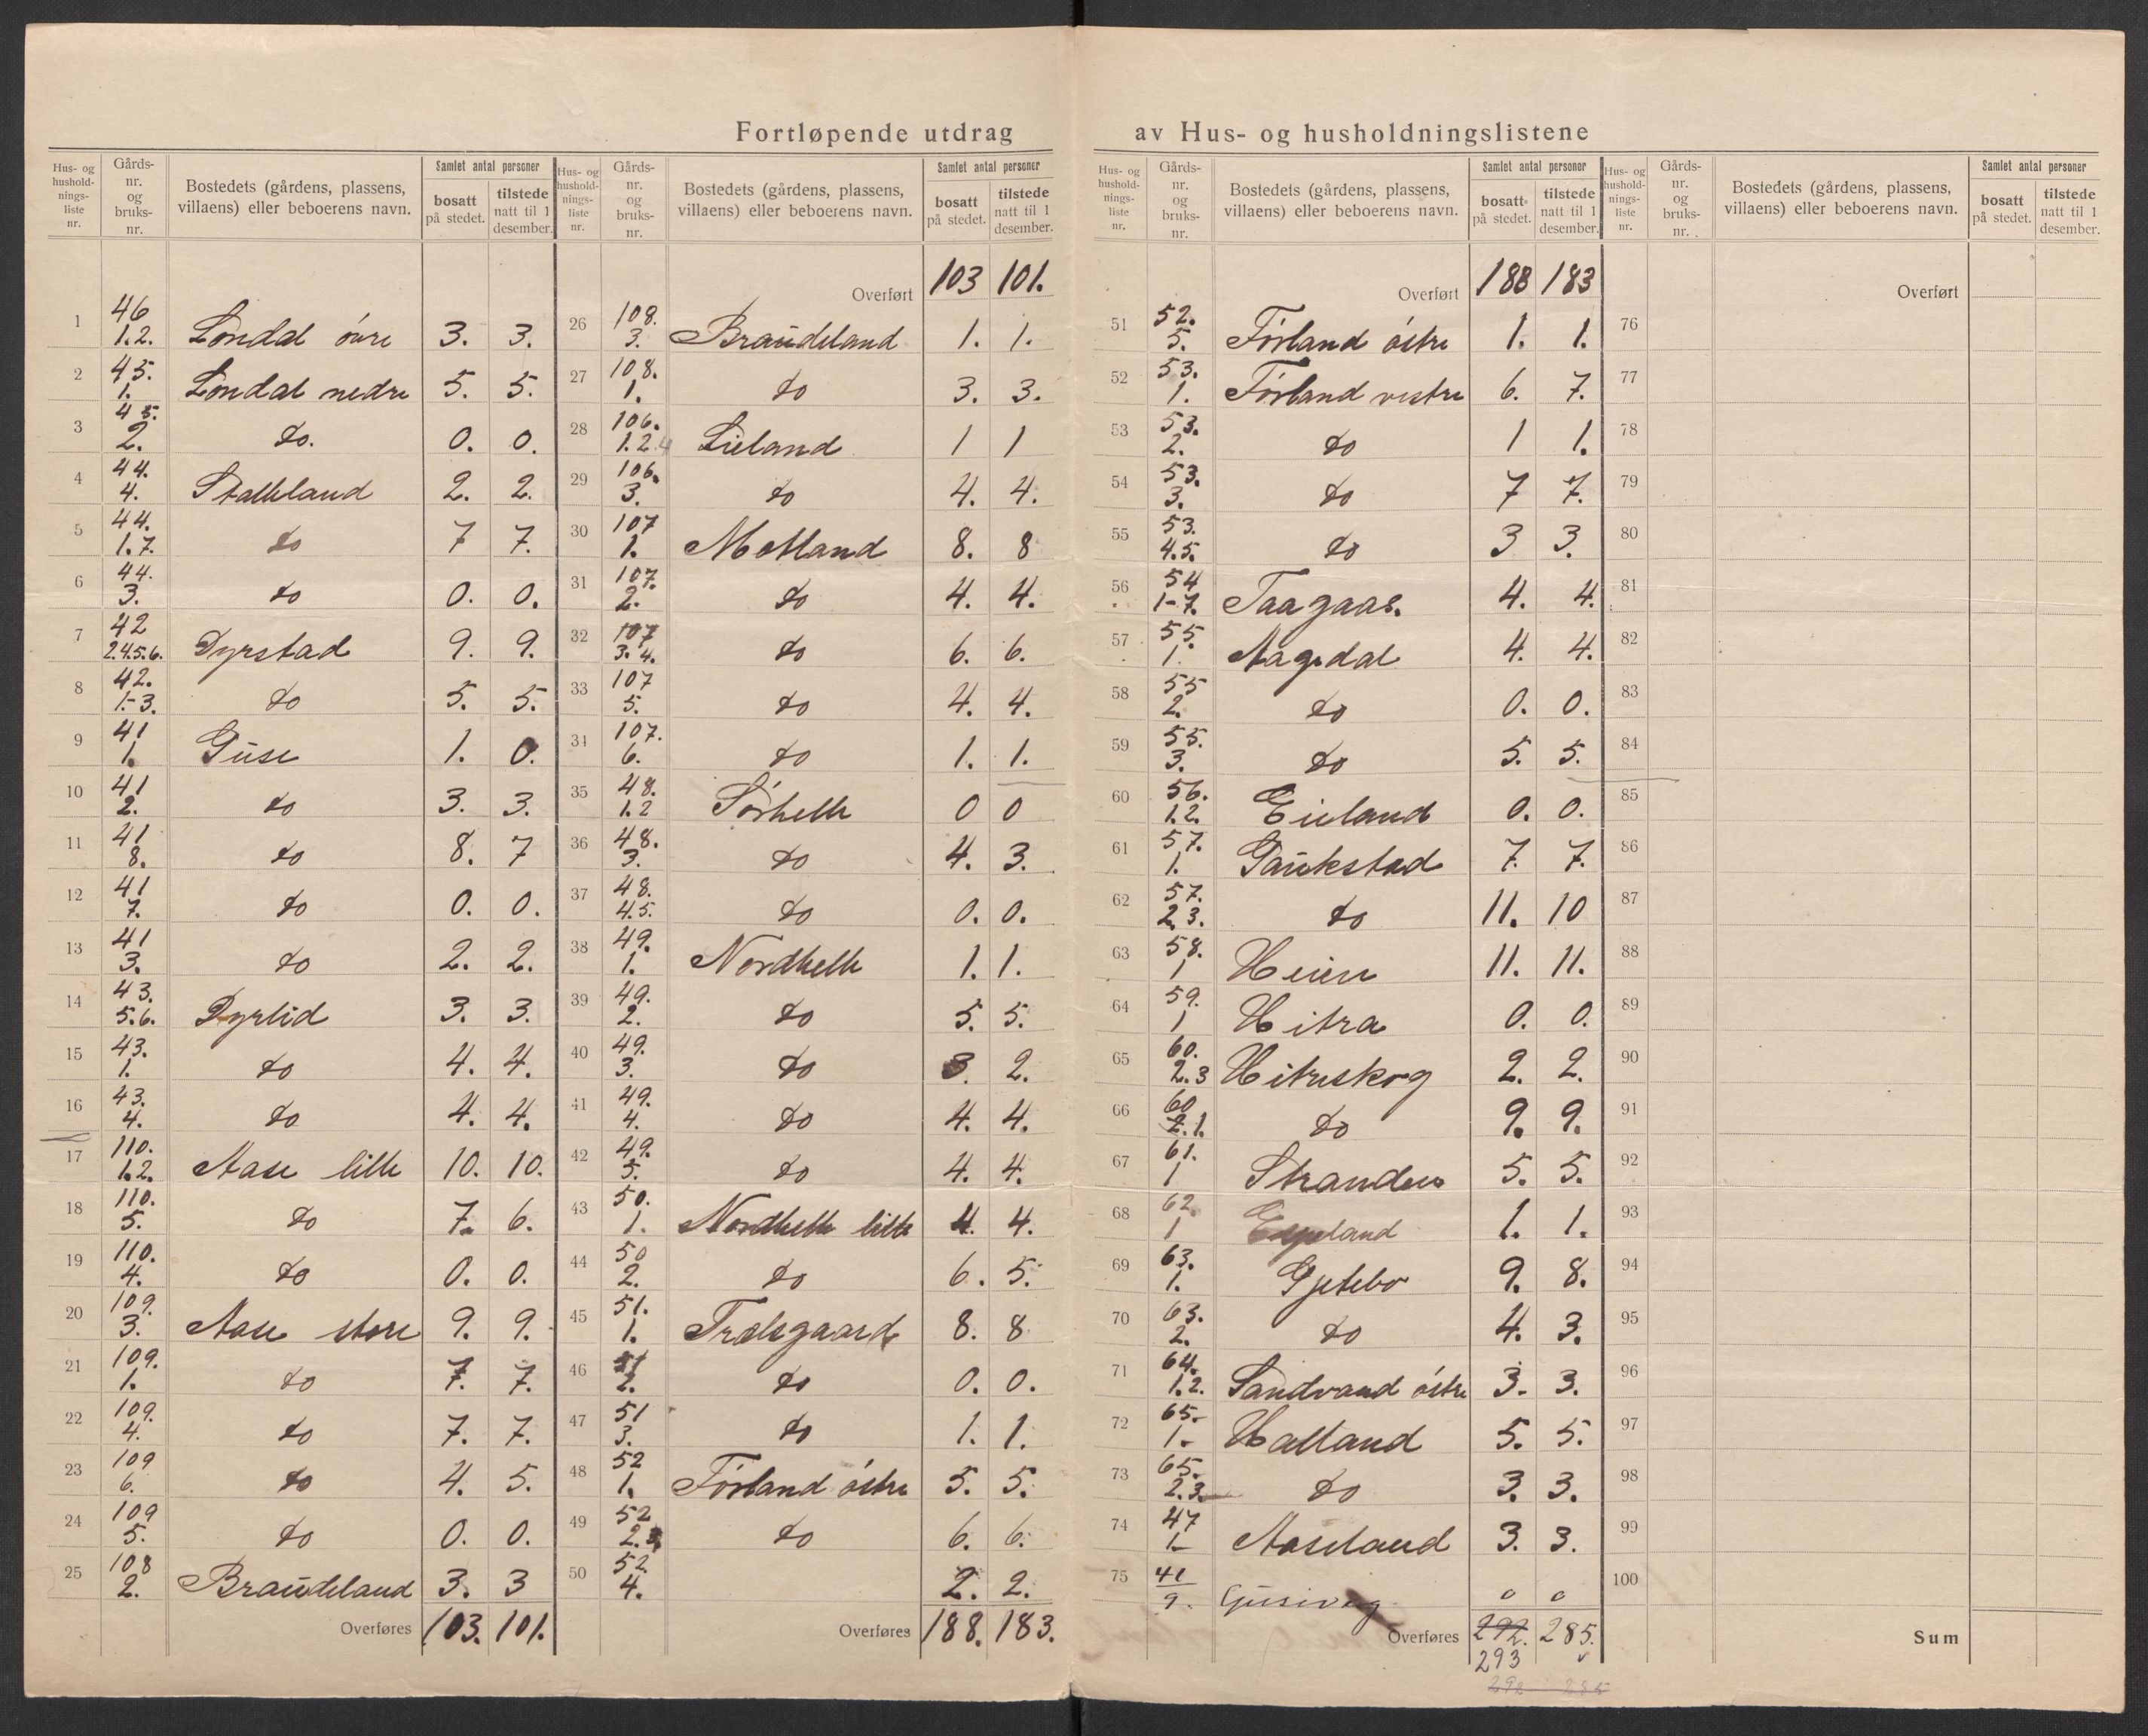 Fortløpende utdrag av Hus- og husholdningslistene
Hus- og hushold-nings-liste nr. | Gårds-nr. og bruks-nr. | Bostedets (gårdens, plassens, villaens) eller beboerens navn. | Samlet antal personer | bosatt på stedet. | tilstede natt til 1 desember.
1 | 46 1.2. | Londal övre | 3. | 3.
2 | 45. 1. | Londal nedre | 5. | 5.
3 | 45. 2. | do. | 0. | 0.
4 | 44. 4. | Stalleland | 2. | 2.
5 | 44. 1.7. | do | 7 | 7.
6 | 44. 3. | do | 0. | 0.
7 | 42 2.4.5.6. | Dyrstad | 9. | 9.
8 | 42. 1.-3. | do | 5. | 5.
9 | 41 1. | Guse | 1. | 0.
10 | 41 2. | do | 3. | 3.
11 | 41 8. | do | 8. | 7
12 | 41 7. | do | 0. | 0.
13 | 41 3. | do | 2. | 2.
14 | 43. 5.6. | Dyrlid | 3. | 3.
15 | 43. 1. | do | 4. | 4.
16 | 43. 4. | do | 4. | 4.
17 | 110. 1.2. | Aase lille | 10. | 10.
18 | 110. 5. | do | 7. | 6.
19 | 110. 4. | do | 0. | 0.
20 | 109. 3. | Aase store | 9. | 9.
21 | 109. 1. | do | 7. | 7.
22 | 109. 4. | do | 7. | 7.
23 | 109 6. | do | 4. | 5.
24 | 109 5. | do | 0. | 0.
25 | 108 2. | Braudeland | 3. | 3
Overføres | 103. | 101.
Hus- og hushold-nings-liste nr. | Gårds-nr. og bruks-nr. | Bostedets (gårdens, plassens, villaens) eller beboerens navn. | Samlet antal personer | bosatt på stedet. | tilstede natt til 1 desember.
Overført | 103 | 101.
26 | 108. 3. | Braudeland | 1. | 1.
27 | 108. 1. | do | 3. | 3.
28 | 106. 1.2.4 | Lieland | 1 | 1
29 | 106. 3. | do | 4. | 4.
30 | 107 1. | Motland | 8. | 8
31 | 107. 2. | do | 4. | 4.
32 | 107 3.4. | do | 6. | 6.
33 | 107 5. | do | 4. | 4.
34 | 107. 6. | do | 1. | 1.
35 | 48. 1.2 | Sørhelle | 0 | 0
36 | 48. 3. | do | 4. | 3.
37 | 48. 4.5. | do | 0. | 0.
38 | 49. 1. | Nordhelle | 1. | 1.
39 | 49. 2. | do | 5. | 5.
40 | 49. 3. | do | 3. | 2.
41 | 49. 4. | do | 4. | 4.
42 | 49. 5. | do | 4. | 4.
43 | 50. 1. | Nordhelle lille | 4. | 4.
44 | 50 2. | do | 6. | 5.
45 | 51. 1. | Trælsgaard | 8. | 8
46 | 51 2. | do | 0. | 0.
47 | 51 3. | do | 1. | 1.
48 | 52 1. | Förland östre | 5. | 5.
49 | 52 2.3. | do | 6. | 6.
50 | 52 4. | 2. | 2.
Overføres | 188. | 183.
Hus- og hushold-nings-liste nr. | Gårds-nr. og bruks-nr. | Bostedets (gårdens, plassens, villaens) eller beboerens navn. | Samlet antal personer | bosatt på stedet. | tilstede natt til 1 desember.
Overført | 188 | 183
51 | 52. 5. | Förland östre | 1. | 1.
52 | 53. 1. | Förland vestre | 6. | 7.
53 | 53. 2. | do | 1 | 1.
54 | 53. 3. | do | 7 | 7.
55 | 53. 4.5. | do | 3 | 3.
56 | 54 1-7. | Taagaas. | 4. | 4.
57 | 55. 1. | Aagedal | 4. | 4.
58 | 55 2. | do | 0. | 0.
59 | 55. 3. | do | 5. | 5.
60 | 56. 1.2. | Eieland | 0. | 0.
61 | 57. 1. | Gaukstad | 7. | 7.
62 | 57. 2.3. | do | 11. | 10
63 | 58. 1 | Heien | 11. | 11.
64 | 59. 1 | Hitra | 0. | 0.
65 | 60. 2.3 | Hitreskog | 2. | 2.
66 | 60 2.1. | do | 9. | 9.
67 | 61. 1 | Stranden | 5. | 5.
68 | 62. 1 | Espeland | 1. | 1.
69 | 63. 1. | Gjetebo | 9. | 8.
70 | 63. 2. | do | 4. | 3.
71 | 64. 1.2. | Sandvand östre | 3. | 3.
72 | 65. 1. | Hatland | 5. | 5.
73 | 65. 2.3. | do | 3. | 3.
74 | 47 1 | Aaseland | 3. | 3.
75 | 41 9. | Guseveg | 0 | 0
Overføres | 292. | 285.
293
292 285
Hus- og hushold-nings-liste nr. | Gårds-nr. og bruks-nr. | Bostedets (gårdens, plassens, villaens) eller beboerens navn. | Samlet antal personer | bosatt på stedet. | tilstede natt til 1 desember.
Overført
76
77
78
79
80
81
82
83
84
85
86
87
88
89
90
91
92
93
94
95
96
97
98
99
100
Sum